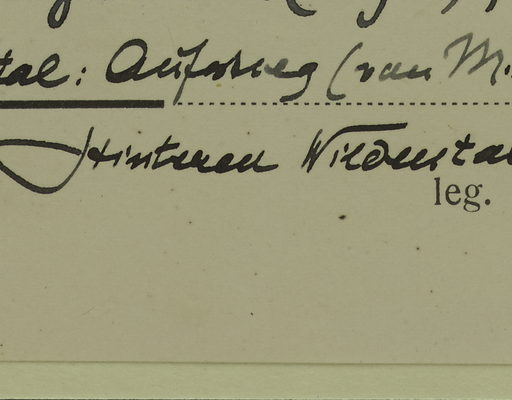 tal: Aufstieg (von M.
Hinteren Wildental
leg.